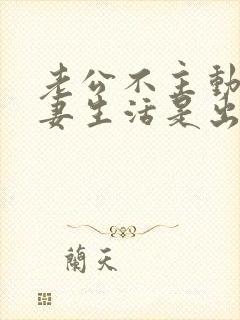 老公不主動
妻生活是出
蘭天